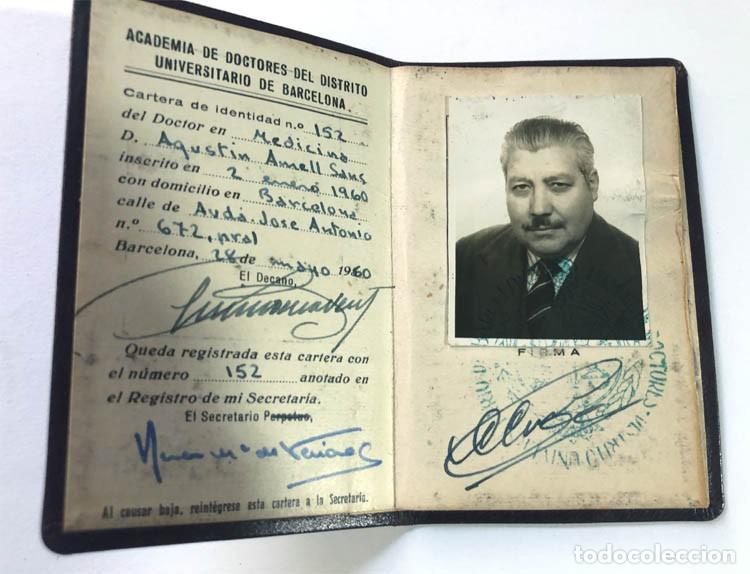 ACADEMIA DE DOCTORES DEL DISTRITO
UNIVERSITARIO DE BARCELONA.
Cartera de identidad n.º 152
del Doctor en Medicina
D. Agustin Amell Sans
inscrito en 2 enero 1960
con domicilio en Barcelona
calle de Avda. Jose Antonio
n.º 672, pral
Barcelona, 28 de mayo 1960
El Decano,
Queda registrada esta cartera con
el número 152 anotado en
el Registro de mi Secretaría.
El Secretario Perpetuo,
Al causar baja, reintégrese esta cartera a la Secretaría.
FIRMA
todocoleccion